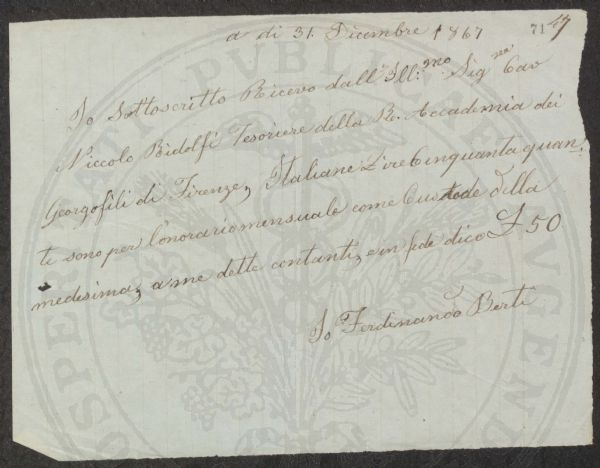 a di 31. Dicembre 1867
71 17
Io Sottoscritto Ricevo dall' Ill:mo Sig.re Cav
Niccolo Ridolfi Tesoriere della R. Accademia dei
Georgofili di Firenze, Italiane Lire Cinquanta quan.
te sono per l'onorario mensuale come Custode della
medesima, a me dette contanti, e in fede dico £ 50
Io Ferdinando Berti
PROSPERITATI PUBLICAE AUGENDAE